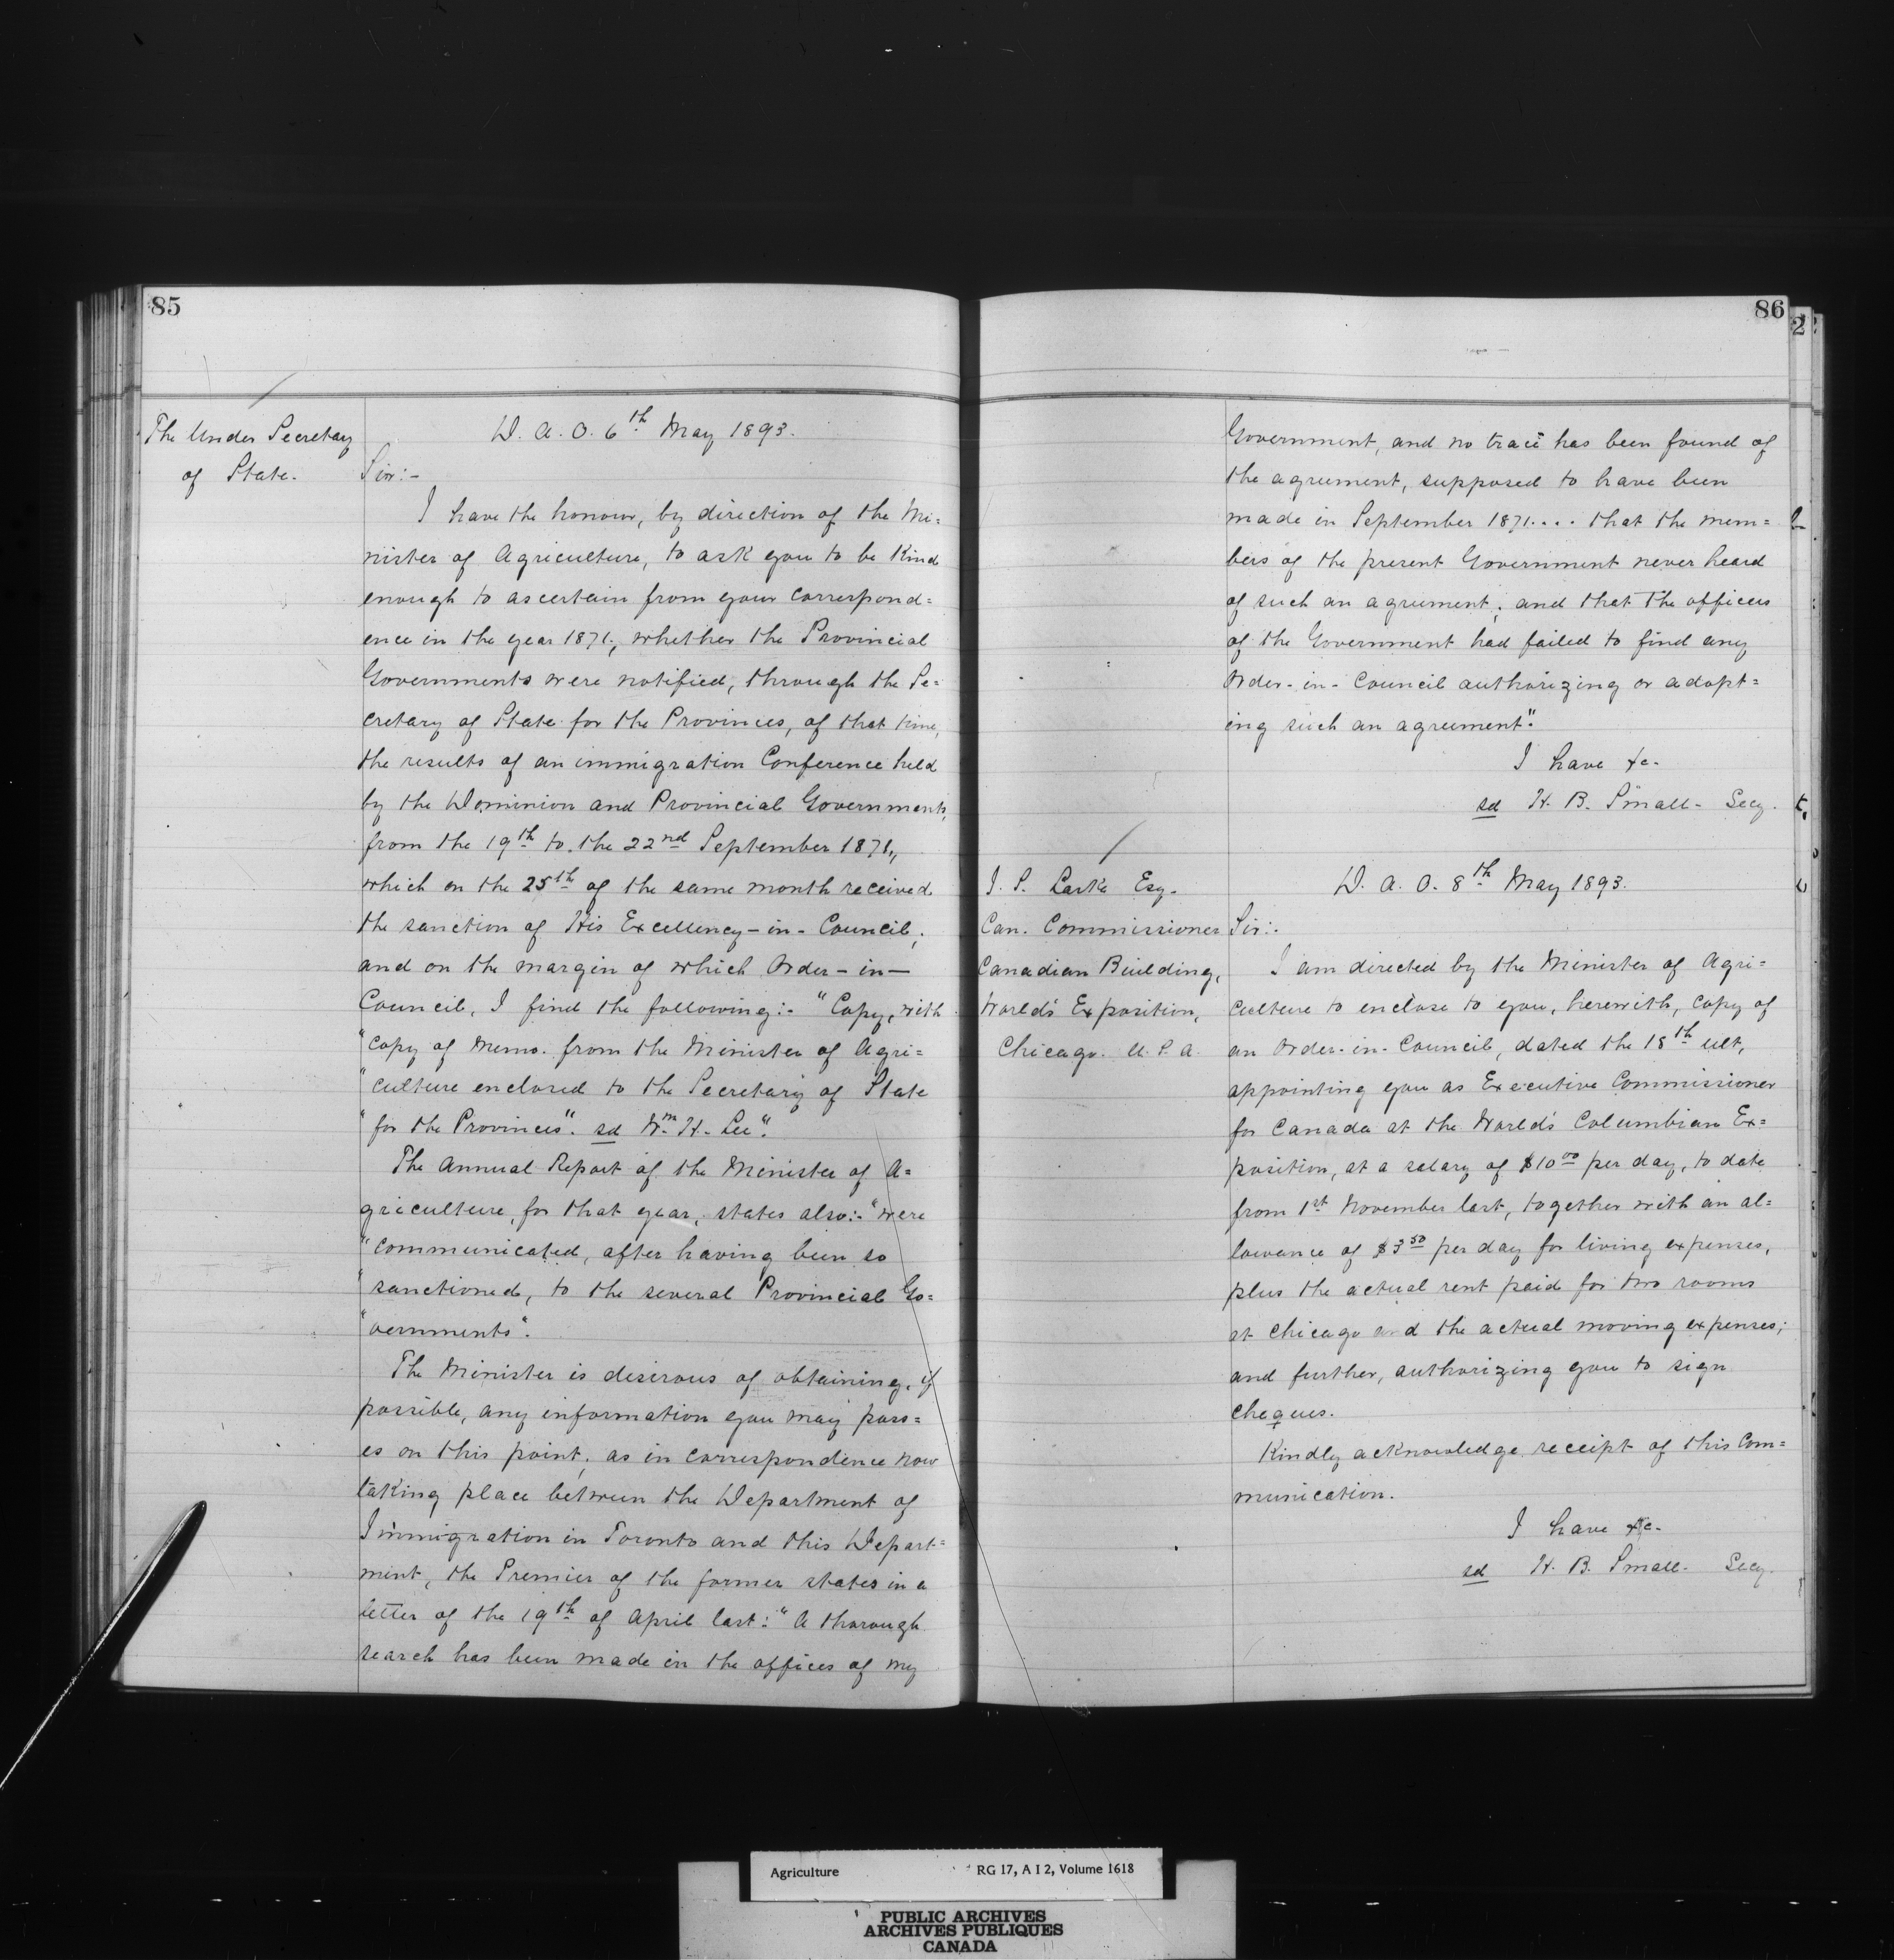 85
The Under Secretary
of State.
D. A. O. 6th May 1893.
Sir:-
I have the honour, by direction of the Mi=
nister of Agriculture, to ask you to be kind
enough to ascertain from your correspond=
ence in the year 1871, whether the Provincial
Governments were notified, through the Se=
cretary of State for the Provinces, of that time,
the results of an immigration Conference held
by the Dominion and Provincial Governments,
from the 19th to the 22nd September 1871,
which on the 25th of the same month received
the sanction of His Excellency-in-Council;
and on the margin of which Order-in-
Council, I find the following:- "Copy, with
"copy of Memo. from the Minister of Agri=
"culture enclosed to the Secretary of State
"for the Provinces". sd Wm H. Lee".
The Annual Report of the Minister of A=
griculture, for that year, states also:- "were
"communicated, after having been so
"sanctioned, to the several Provincial Go=
"vernments".
The Minister is desirous of obtaining, if
possible, any information you may poss=
es on this point, as in correspondence now
taking place between the Department of
Immigration in Toronto and this Depart=
ment, the Premier of the former states in a
letter of the 19th of April last: "A thorough
search has been made in the offices of my
86
2
Government, and no trace has been found of
the agreement, supposed to have been
made in September 1871.... that the mem=
bers of the present Government never heard
of such an agreement; and that the officers
of the Government had failed to find any
Order-in-Council authorizing or adopt=
ing such an agreement".
I have &c.
sd H. B. Small. Secy.
J. S. Larke Esq.
Can. Commissioner
Canadian Building,
World's Exposition,
Chicago. U.S.A.
D. A. O. 8th May 1893.
Sir:.
I am directed by the Minister of Agri=
culture to enclose to you, herewith, copy of
an Order-in-Council, dated the 18th ult,
appointing you as Executive Commissioner
for Canada at the World's Columbian Ex=
position, at a salary of $10 00 per day, to date
from 1st November last, together with an al=
lowance of $3 50 per day for living expenses,
plus the actual rent paid for two rooms
at Chicago and the actual moving expenses;
and further, authorizing you to sign
cheques.
Kindly acknowledge receipt of this Com=
munication.
I have &c.
sd H. B. Small. Secy.
Agriculture RG 17, A I 2, Volume 1618
PUBLIC ARCHIVES
ARCHIVES PUBLIQUES
CANADA